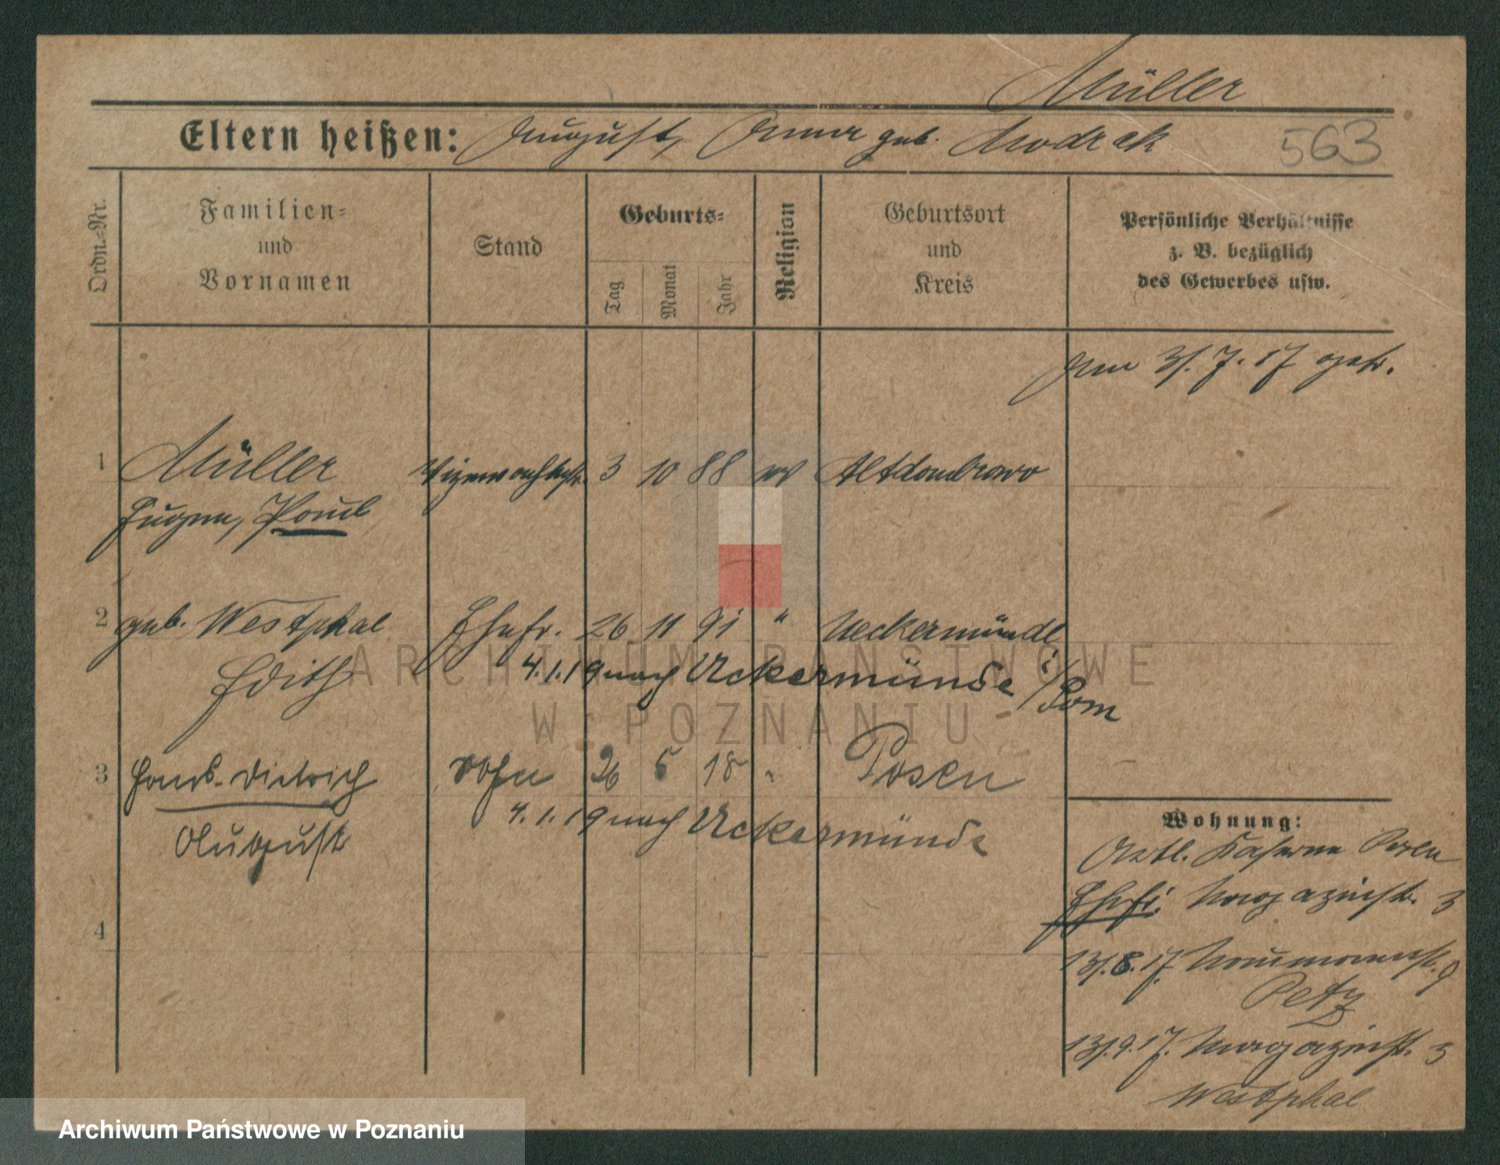 Müller
Eltern heißen: August, Anna geb. Modrak
563
Ordn.-Nr.
Familien-
und
Vornamen
Stand
Geburts-
Tag
Monat
Jahr
Religion
Geburtsort
und
Kreis
Persönliche Verhältnisse
z. B. bezüglich
des Gewerbes usw.
31. 7. 17
1 Müller 3 10 88 ev
Eugen, Paul
2 geb. Westphal Ehefr. 26 11 91 " Ueckermünde
Edith 4.1.19 nach Uckermünde i/Pom
3 Hans-Dietrich Sohn 26 5 18 " Posen
4.1.19 nach Uckermünde
August
4
Wohnung:
Artl. Kaserne Posen
Ehefr. Magazinstr. 3
13/8.17. Naumannstr. 9
Petz
13/9.17. Magazinstr. 3
Westphal
ARCHIWUM PAŃSTWOWE
W POZNANIU
Archiwum Państwowe w Poznaniu